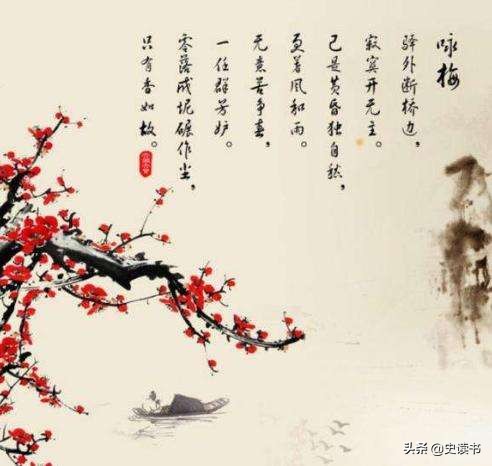 咏梅
驿外断桥边，
寂寞开无主。
已是黄昏独自愁，
更着风和雨。
无意苦争春，
一任群芳妒。
零落成泥碾作尘，
只有香如故。
头条 @史读书